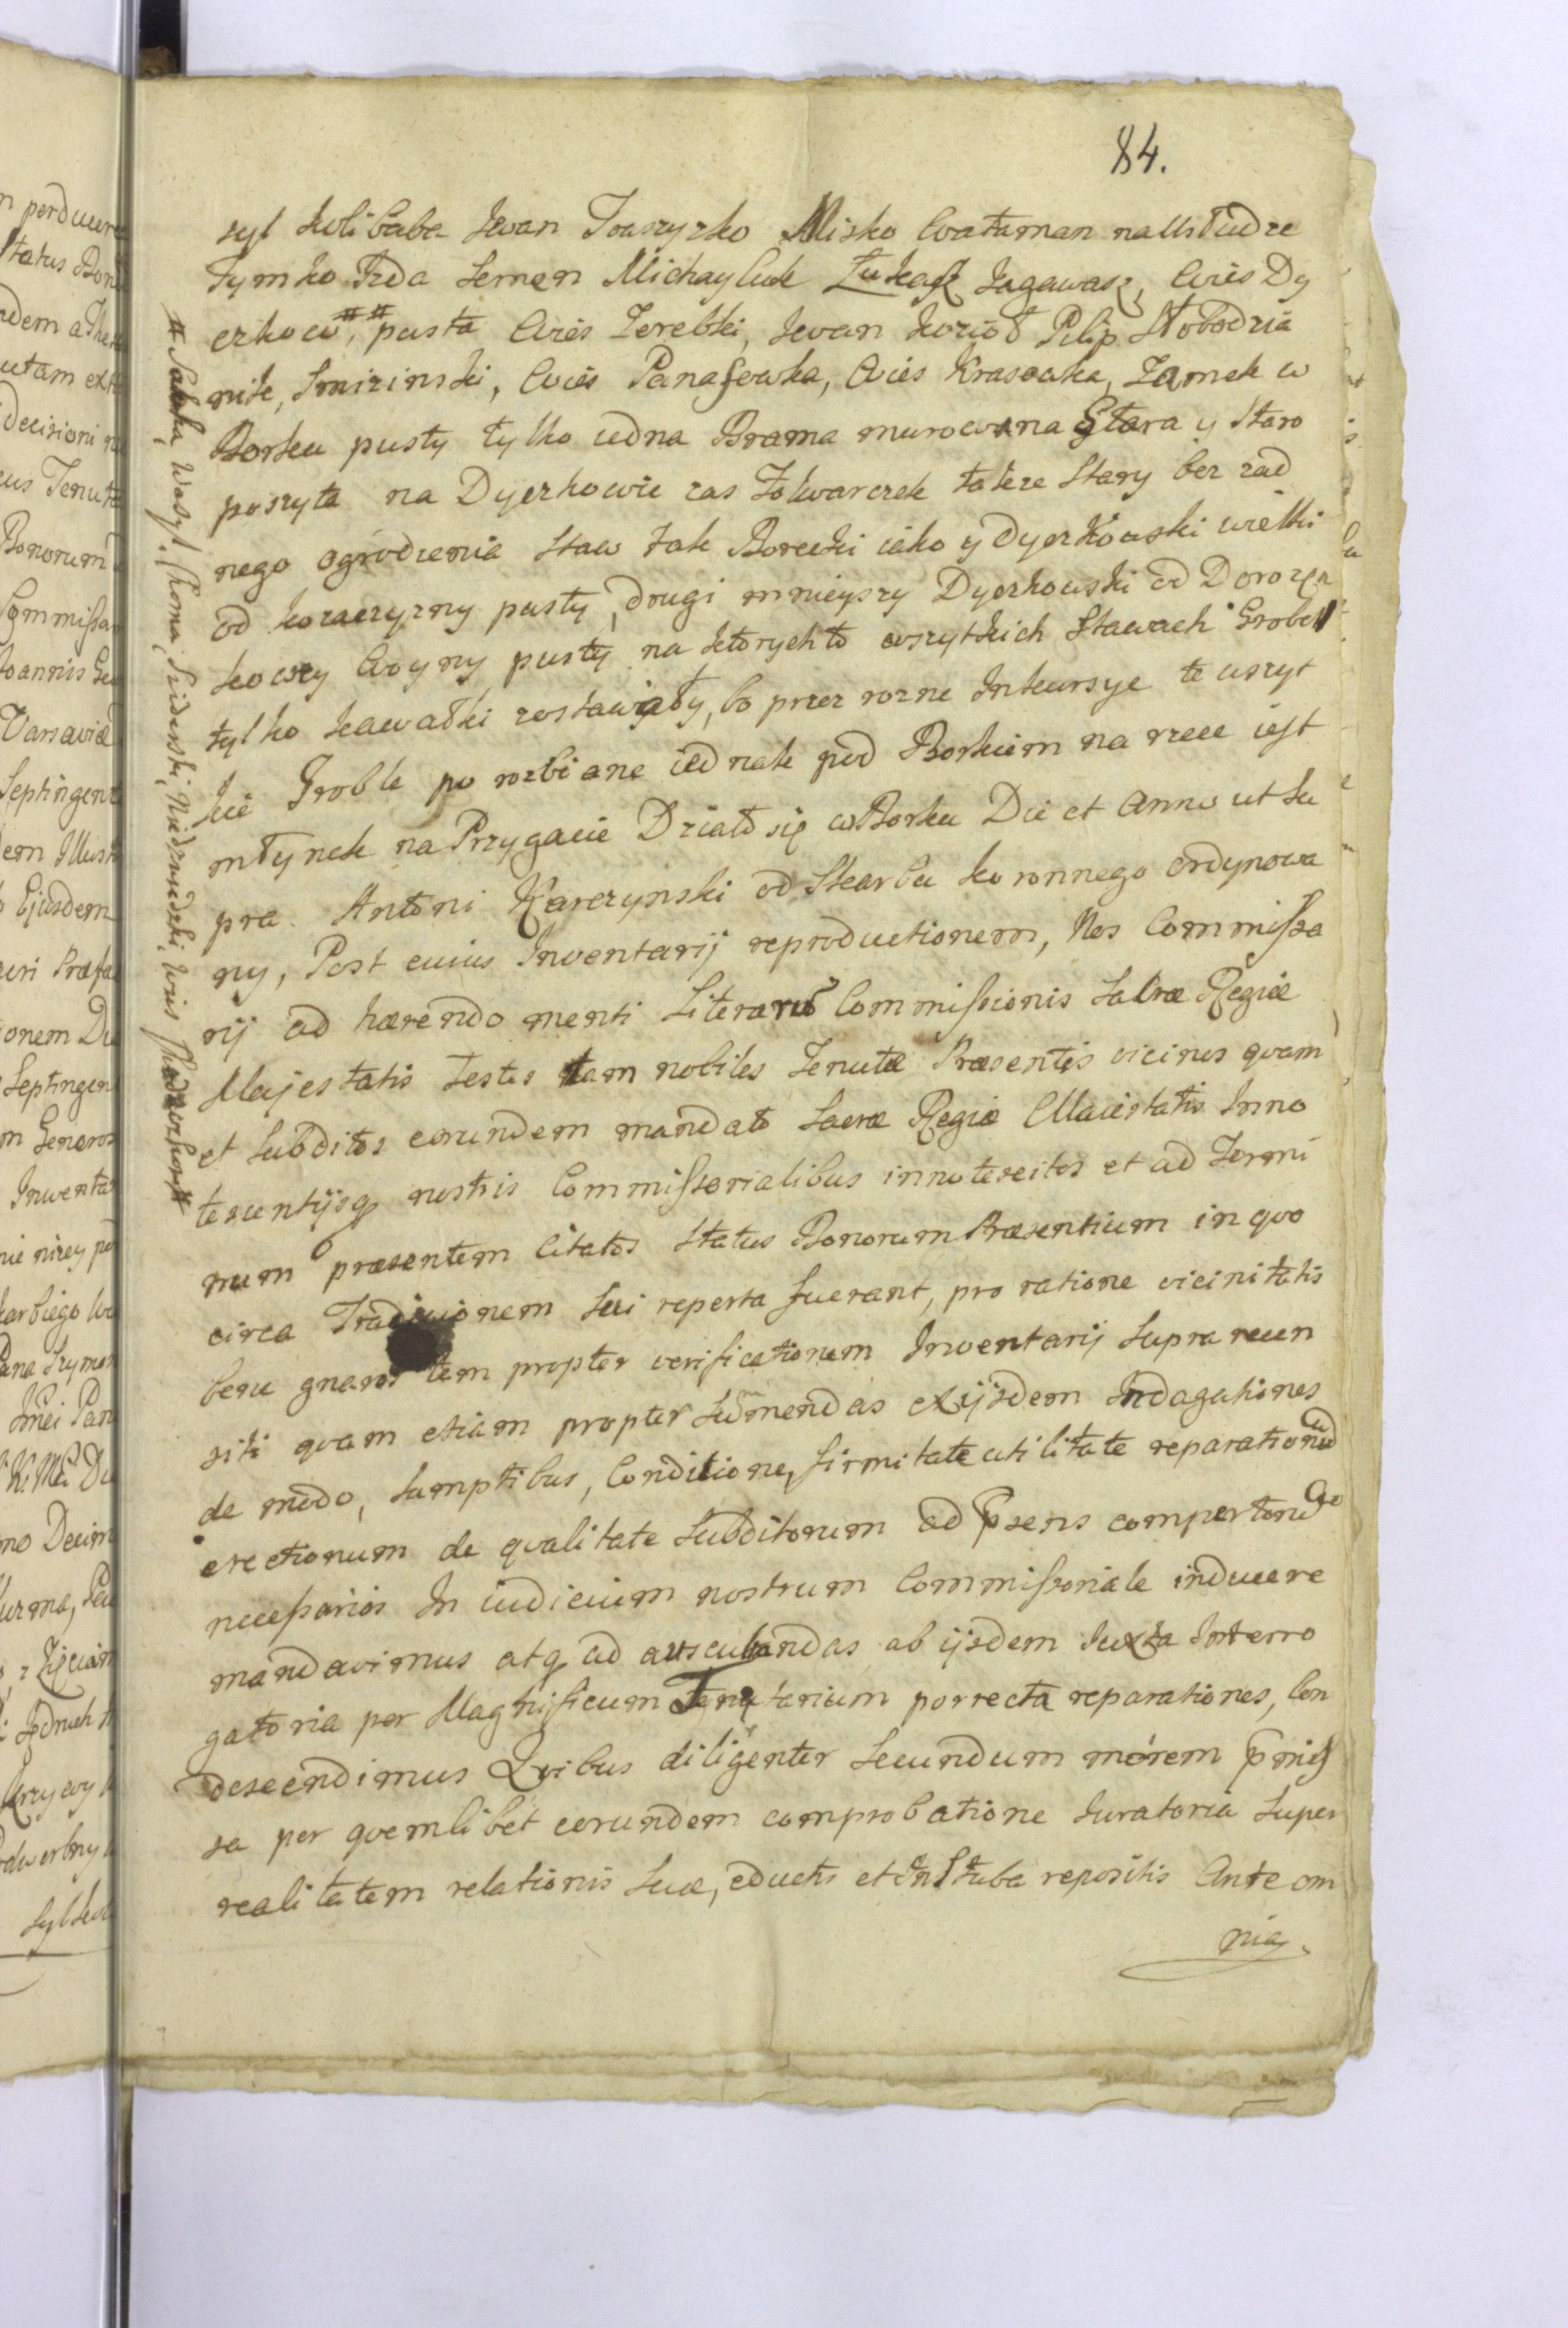 84.
syl Kolibaba Iwan Iwaszyzko Misko Wataman na Ustudze
Tymko Semen Michayluk Łukasz Wies Dy
erkow,## pusta Wies Zerebki, Iwan Kozioł Pilip Słobodzia
nik, Smirinski, Wies Panasowka, Wies Krasowka, Zamek w
Borku pusty tylko iedna Brama murowana Stara y Staro
poszyta na Dyerkowie zas Folwarczek takze Stary bez zad
nego ogrodzenia Staw tak Borecki iako y Dyerkowski wielki
od kozaczyzny pusty, drugi mnieyszy Dyerkowski od Doroszen
kowey Woyny pusty na ktorychto wszytkich Stawach Grobel
tylko kawałki zostawały, bo przez rozne Inkursye te wszyt
kie Groble po rozbiane iednak pod Borkiem na rzece iest
młynek na Przygacie Działo się w Borku Die et Anno ut Su
pra. Antoni Karczynski od Skarbu koronnego ordynowa
ny, Post cuius Inventarij reproductionem, Nos Commissa
rij ad hærendo menti Literarũ Commissionis Sacræ Regiæ
Majestatis Testes tam nobiles Tenutæ Præsentis vicinos qvam
et Subditos eorundem mandato Sacræ Regiæ Maiestatis Inno
tescentijsq nostris Commissorialibus innotescitos et ad Termi
num præsentem Citatos Status Bonorum Præsentium in qvo
circa Traditionem Sui reperta fuerant, pro ratione vicinitatis
bene gnaros tem propter verificationem Inventarij Supra recen
siti qvam etiam propter Sũmendas ex ijsdem Indagationes
de modo, Sumptibus, Conditione, firmitate utilitate reparationũ
erectionum de qvalitate Subditorum ad psens comportand
necessarios In iudicium nostrum Commissoriale inducere
mandavimus atq ad auscultandas ab ijsdem Iuxta Interro
gatoria per Magnificum Tenutarium porrecta reparationes, Con
descendimus Qvibus diligenter Secundum morem pmis
sa per qvemlibet eorundem comprobatione Iuratoria Super
realitatem relationis Suæ, eductis et In Stuba repositis Ante om
nia.
# Wasyl, Choma, wies #